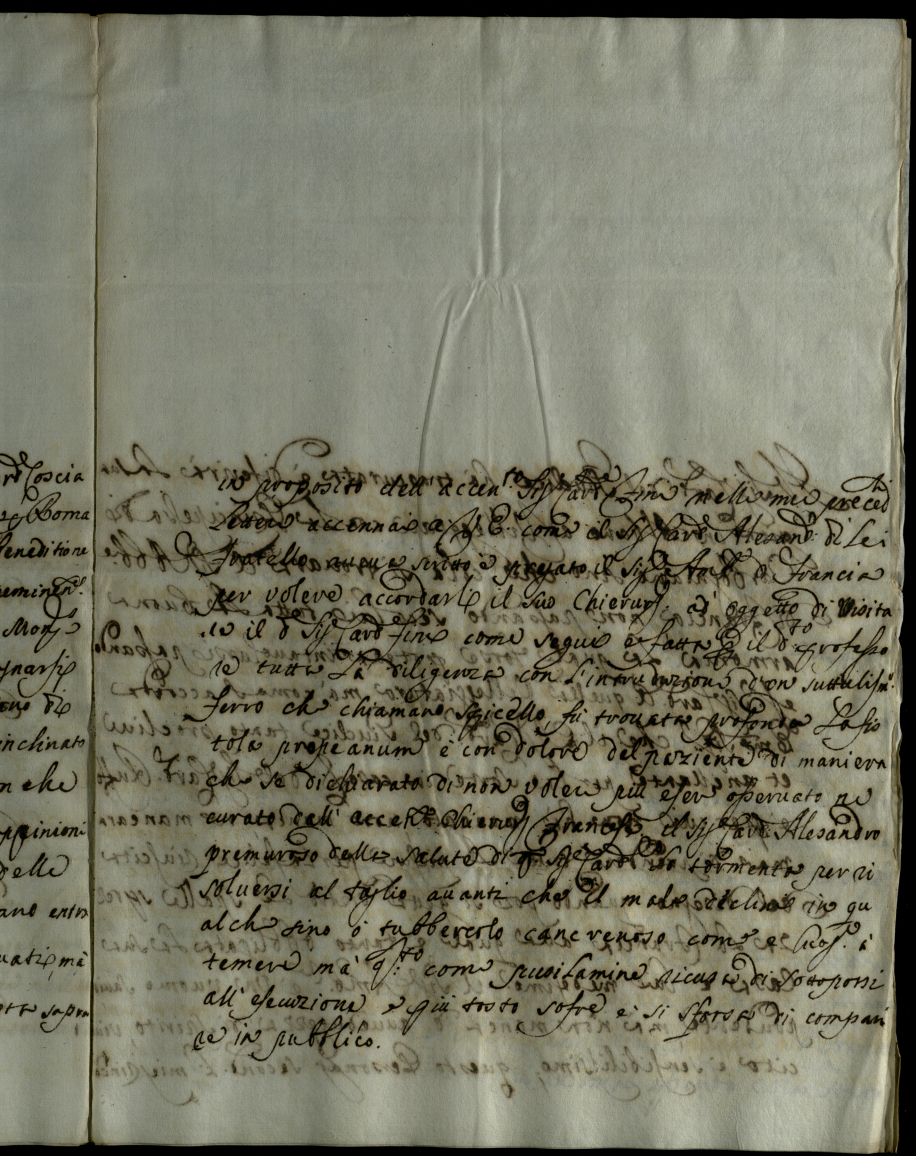 rd Coscia
Roma
Beneditione
eminen.
Mons
gnarsi
di
inclinato
n che
oppinioni
delle
ano entro
uati, mà
sopra
in proposito dell' accen.to Sig.r Card. nelle mie preced
Lettere accennai a V. E. come il Sig.r Card. Alesand. di Lei
Fratello aveva scritto e pregato il Sig.r Amb. di Francia
per volere accordarli il suo Chierurg. ad' oggetto di visita
re il d. Sig.r Card. come seguì e fatta il d.to professo
re tutta La diligenza con L'introduzione d'un suttilissi.
ferro che chiamano spicello, fù trovata profonda La fis
tola prope anum e con dolore del paziente di maniera
che se dichiarato di non volere più esser osservato ne
curato dall' accen. Chierurg Francese, il Sig.r Card. Alesandro
premuroso della salute di Sig.r Card. lo tormenta per ri
soluersi al taglio auanti che il male declini in qu
alche sino ó tubbercolo cancrenoso come e luog. à
temere mà q.sto come pusilamine ricusa di sottoporsi
all' esecuzione e più tosto sofre e si sforza di compari
re in pubblico.